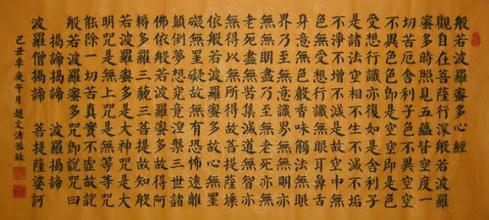 般若波羅蜜多心經
觀自在菩薩行深般若波羅
蜜多時照見五蘊皆空度一
切苦厄舍利子色不異空空
不異色色即是空空即是色
受想行識亦復如是舍利子
是諸法空相不生不滅不垢
不淨不增不減是故空中無
色無受想行識無眼耳鼻舌
身意無色聲香味觸法無眼
界乃至無意識界無無明亦
無無明盡乃至無老死亦無
老死盡無苦集滅道無智亦
無得以無所得故菩提薩埵
依般若波羅蜜多故心無罣
礙無罣礙故無有恐怖遠離
顛倒夢想究竟涅槃三世諸
佛依般若波羅蜜多故得阿
耨多羅三藐三菩提故知般
若波羅蜜多是大神咒是大
明咒是無上咒是無等等咒
能除一切苦真實不虛故說
般若波羅蜜多咒即說咒曰
揭諦揭諦 波羅揭諦
波羅僧揭諦 菩提薩婆訶
己丑年庚午月趙文濤恭錄